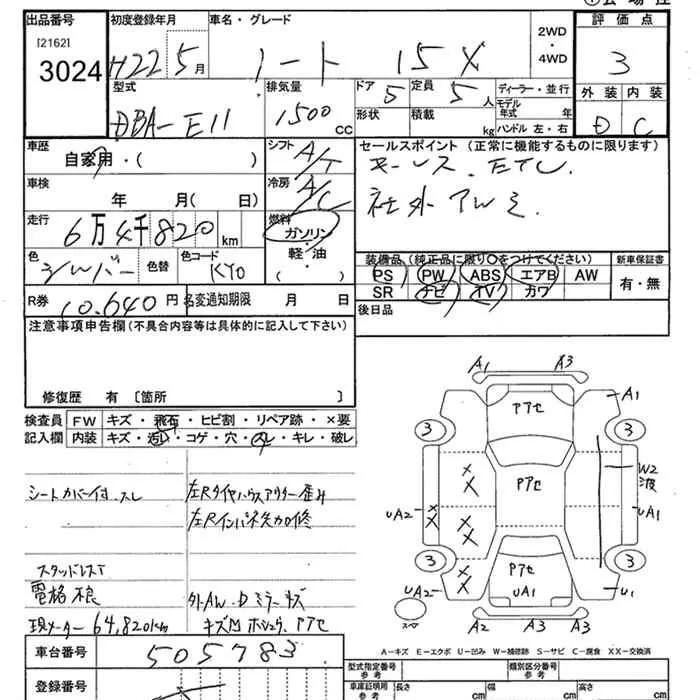 出品番号
[2162]
3024
初度登録年月
H22 5月
車名・グレード
ノート 15X
2WD
・
4WD
評価点
3
外装 内装
D C
型式
DBA-E11
排気量
1500 cc
ドア
5
定員
5人
形状
積載
kg
ディーラー・並行
モデル年式 年
ハンドル 左・右
車歴
自家用・( )
シフト
A/T
セールスポイント (正常に機能するものに限ります)
キーレス. ETC.
社外 AW ミ.
車検
年 月( 日)
冷房
A/C
走行
6万4千820km
燃料
ガソリン
・
軽・油
・
( )
色
シルバー
色替
色コード
KY0
装備品 (純正品に限り○をつけてください)
PS PW ABS エアB AW
SR ナビ TV カワ
新車保証書
有・無
R券
10.640円
名変通知期限 月 日
後日品
注意事項申告欄(不具合内容等は具体的に記入して下さい)
修復歴 有〔箇所 〕
検査員
記入欄
FW キズ・飛石・ヒビ割・リペア跡・×要
内装 キズ・汚レ・コゲ・穴・スレ・キレ・破レ
シートカバー付.スレ
左Rタイヤハウスアウター歪み
左Rインパネ矢加修
スタッドレスT
電格不良
外AW.Dミラーキズ
現メーター 64,820km
キズ凹ホシュウ.アアセ
車台番号
505783
登録番号
A1 A3
アアセ
A1
3 3
W2
波
アアセ
UA2
UA1
3 3
アアセ
UA1
UA2
U1
スペア
A2 A3 A3
A-キズ E-エクボ U-凹み W-補修跡 S-サビ C-腐食 XX-交換済
型式指定番号
参考
類別区分番号
参考
車庫証明用
参考
長さ cm
幅 cm
高さ cm